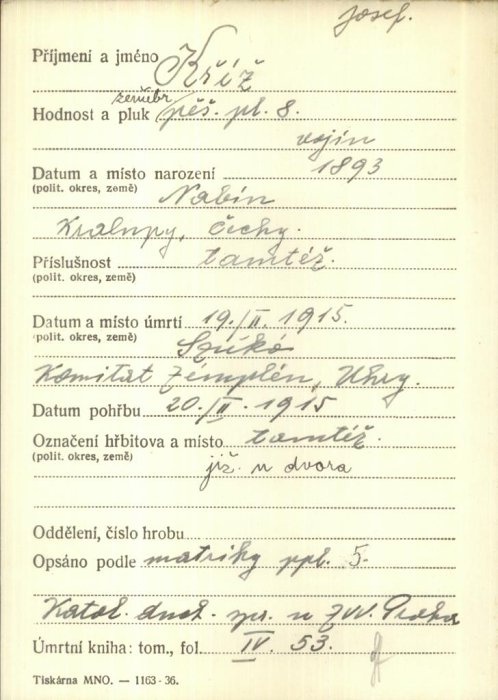 Josef.
Příjmení a jméno Kříž
zeměbr
Hodnost a pluk pěš. pl. 8.
vojín
Datum a místo narození 1893
(polit. okres, země) Nabín
Kralupy, Čechy.
Příslušnost tamtéž.
(polit. okres, země)
Datum a místo úmrtí 19./II. 1915.
(polit. okres, země) Szúkó
Komitát Zémplén, Uhry.
Datum pohřbu 20./II. 1915
Označení hřbitova a místo tamtéž.
(polit. okres, země) již. u dvora
Oddělení, číslo hrobu
Opsáno podle matriky ppl. 5.
Katol. duch. spr. u ZVV. Praha
Úmrtní kniha: tom., fol. IV. 53.
Tiskárna MNO. — 1163-36.